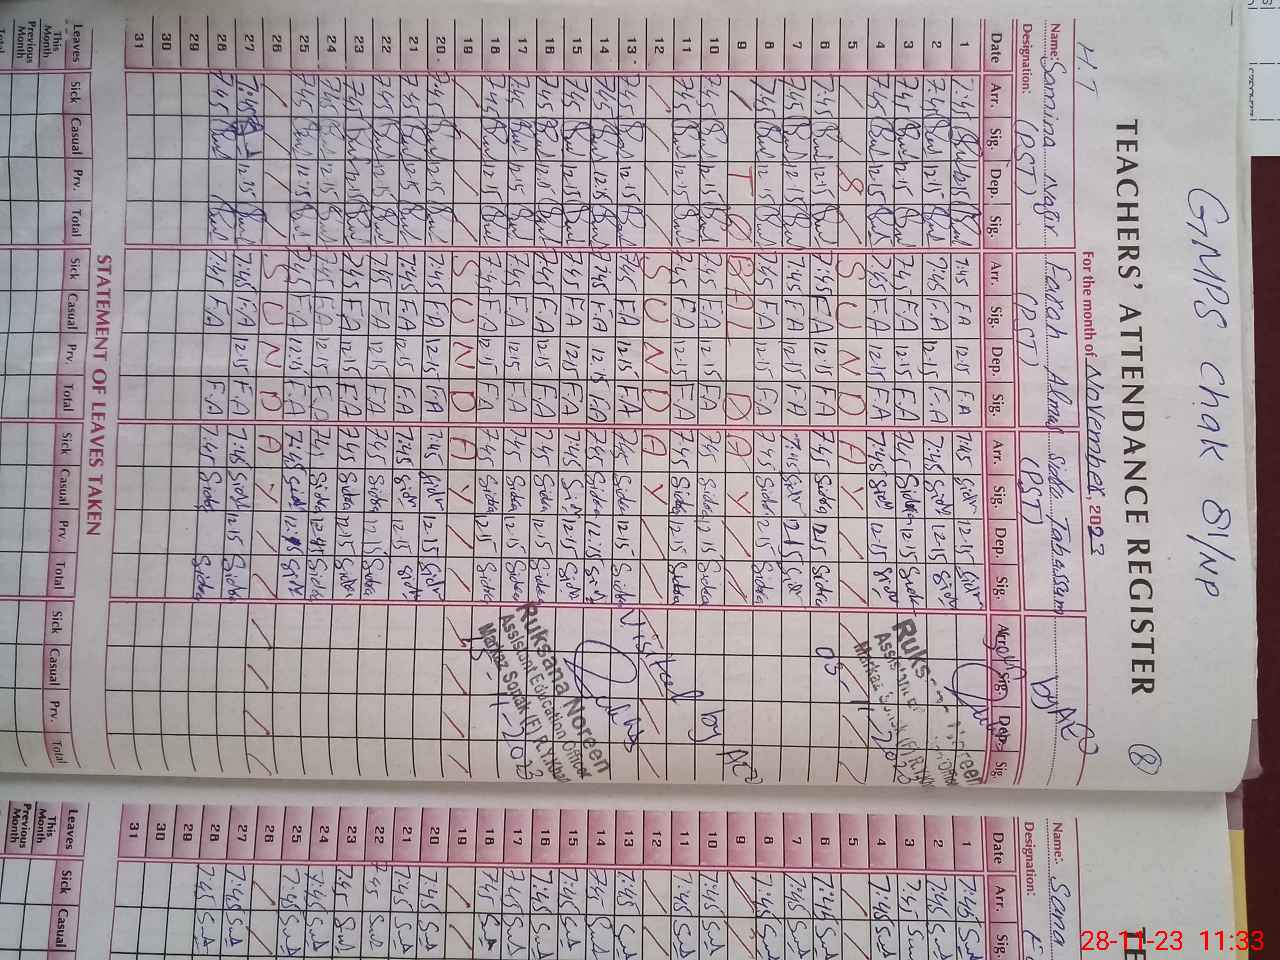 GMPS Chak 81/NP
TEACHERS' ATTENDANCE REGISTER
For the month of November, 2023
H.T
Name: Samina Nazir
Farrah Almas
Sidra Tabassum
by AEO
Designation: (PST)
(PST)
(PST)
Date Arr. Sig. Dep. Sig. Arr. Sig. Dep. Sig. Arr. Sig. Dep. Sig. Arr. Sig. Dep. Sig.
1 7:45 12:15 7:45 F.A 12:15 F.A 7:45 Sidra 12:15 Sidra
2 7:45 12:15 7:45 F.A 12:15 F.A 7:45 Sidra 12:15 Sidra
3 7:45 12:15 7:45 F.A 12:15 F.A 7:45 Sidra 12:15 Sidra
4 7:45 12:15 7:45 F.A 12:15 F.A 7:45 Sidra 12:15 Sidra
5 S S U N D A Y
6 7:45 12:15 7:45 F.A 12:15 F.A 7:45 Sidra 12:15 Sidra
7 7:45 12:15 7:45 F.A 12:15 F.A 7:45 Sidra 12:15 Sidra
8 7:45 12:15 7:45 F.A 12:15 F.A 7:45 Sidra 12:15 Sidra
9 I Q BAL D A Y
10 7:45 12:15 7:45 F.A 12:15 F.A 7:45 Sidra 12:15 Sidra
11 7:45 12:15 7:45 F.A 12:15 F.A 7:45 Sidra 12:15 Sidra
12 S U N D A Y
13 7:45 12:15 7:45 F.A 12:15 F.A 7:45 Sidra 12:15 Sidra
14 7:45 12:15 7:45 F.A 12:15 F.A 7:45 Sidra 12:15 Sidra
15 7:45 12:15 7:45 F.A 12:15 F.A 7:45 Sidra 12:15 Sidra
16 7:45 12:15 7:45 F.A 12:15 F.A 7:45 Sidra 12:15 Sidra
17 7:45 12:15 7:45 F.A 12:15 F.A 7:45 Sidra 12:15 Sidra
18 7:45 12:15 7:45 F.A 12:15 F.A 7:45 Sidra 12:15 Sidra
19 S U N D A Y
20 7:45 12:15 7:45 F.A 12:15 F.A 7:45 Sidra 12:15 Sidra
21 7:45 12:15 7:45 F.A 12:15 F.A 7:45 Sidra 12:15 Sidra
22 7:45 12:15 7:45 F.A 12:15 F.A 7:45 Sidra 12:15 Sidra
23 7:45 12:15 7:45 F.A 12:15 F.A 7:45 Sidra 12:15 Sidra
24 7:45 12:15 7:45 F.A 12:15 F.A 7:45 Sidra 12:15 Sidra
25 7:45 12:15 7:45 F.A 12:15 F.A 7:45 Sidra 12:15 Sidra
26 S U N D A Y
27 7:45 12:15 7:45 F.A 12:15 F.A 7:45 Sidra 12:15 Sidra
28 7:45 7:45 F.A F.A 7:45 Sidra Sidra
29
30
31
Visited by AEO
Ruksana Noreen
Assistant Education Officer
Markaz Sonak (F) R.Y.Khan
STATEMENT OF LEAVES TAKEN
Leaves Sick Casual Prv. Total Sick Casual Prv. Total Sick Casual Prv. Total Sick Casual Prv. Total
This Month
Previous Month
Total
TE
Name:
Designation:
Date Arr. Sig.
1 7:45
2 7:45
3 7:45
4 7:45
5
6 7:45
7 7:45
8 7:45
9
10 7:45
11 7:45
12
13 7:45
14 7:45
15 7:45
16 7:45
17 7:45
18 7:45
19
20 7:45
21 7:45
22 7:45
23 7:45
24 7:45
25 7:45
26
27 7:45
28 7:45
29
30
31
Leaves Sick Casual
This Month
Previous Month
28-11-23 11:33